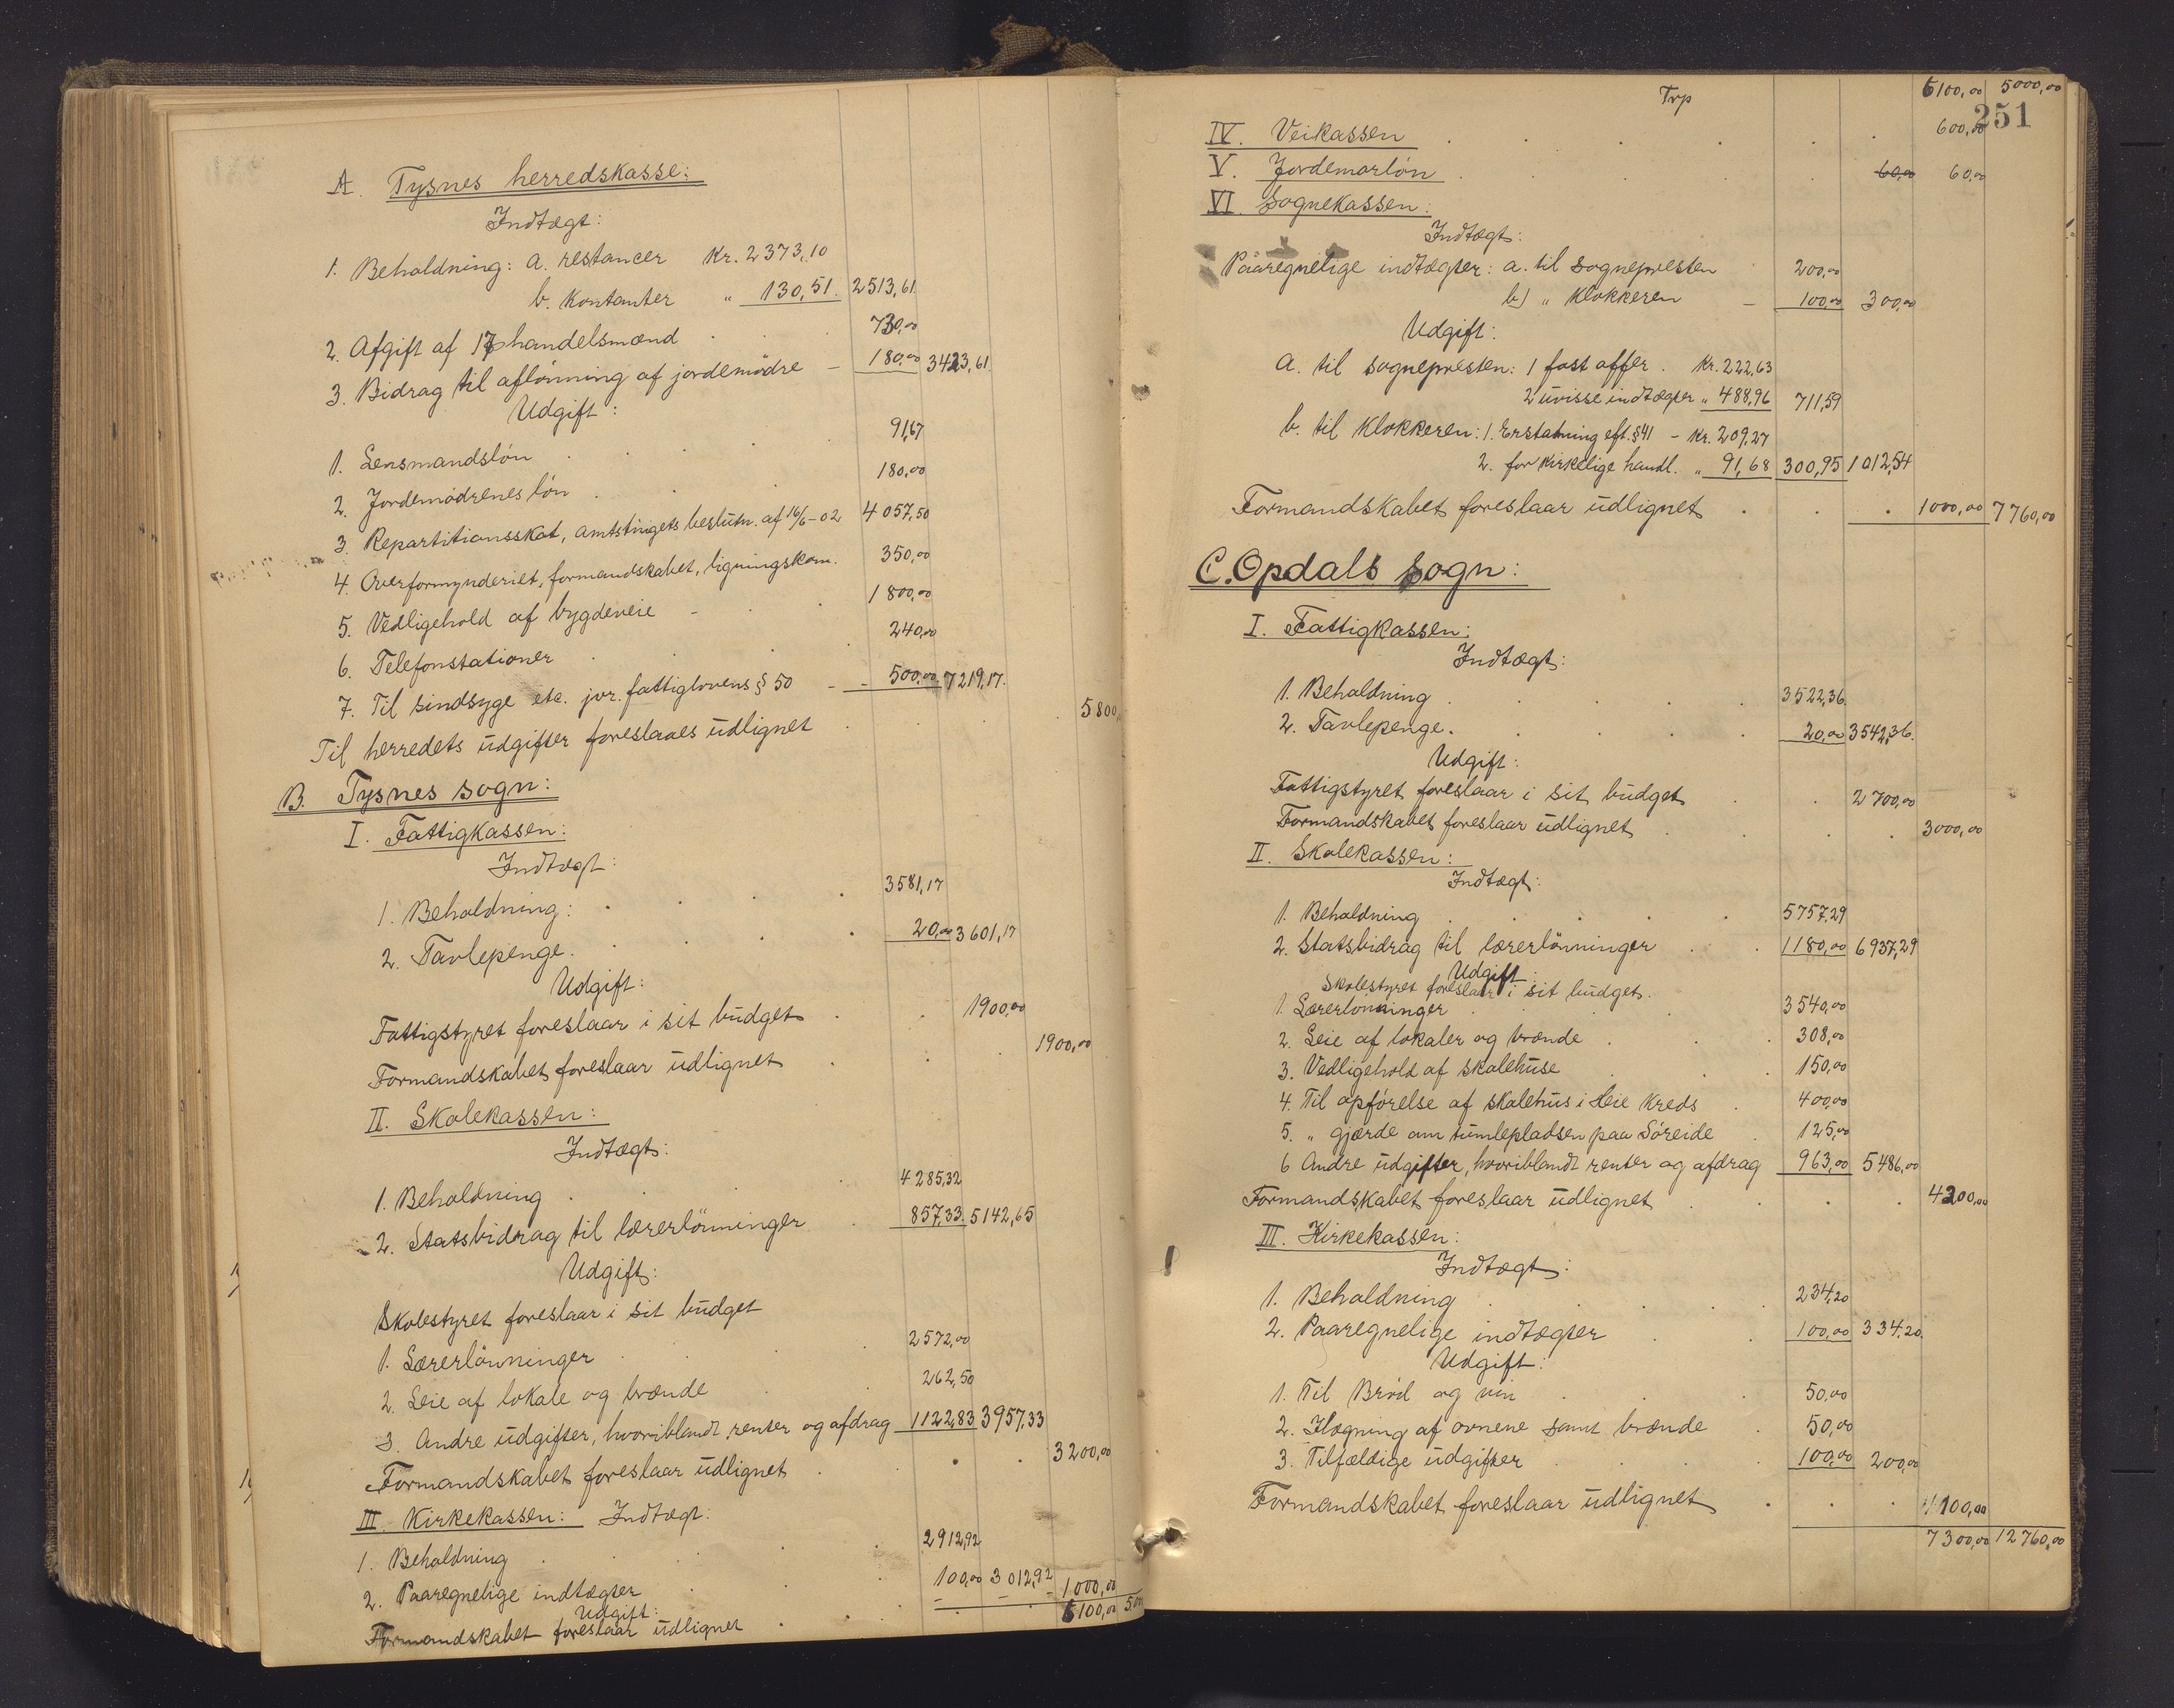 A. Tysnes herredskasse:
Indtægt:
1. Beholdning: a. restancer Kr. 2373,10
b. Kontanter " 130,51. 2513,61
2. Afgift af 17 handelsmænd 730,00
3. Bidrag til aflönning af jordemödre - 180,00 3423,61.
Udgift:
1. Lensmandslön 91,67
2. Jordemödrenes lön 180,00
3. Repartitionsskat, amtstingets beslutn. af 16/6-02 4057,50
4. Overformynderiet, formandskabet, ligningskom. 350,00
5. Vedligehold af bygdeveie - 1800,00
6. Telefonstationer 240,00
7. Til sindsyge etc. jvr. fattiglovens § 50 - - 500,00 7219,17.
Til herredets udgifter foreslaaes udlignet 5800,
B. Tysnes sogn:
I. Fattigkassen:
Indtægt:
1. Beholdning: 3581,17
2. Tavlepenge. 20,00 3601,17
Udgift:
Fattigstyret foreslaar i sit budget 1900,00
Formandskabet foreslaar udlignet 1900,00
II. Skolekassen:
Indtægt:
1. Beholdning 4285,32
2. Statsbidrag til lærerlönninger 857,33. 5142,65
Udgift:
Skolestyret foreslaar i sit budget
1. Lærerlönninger 2572,00
2. Leie af lokale og brænde 262,50
3. Andre udgifter, hvoriblandt renter og afdrag 1122,83 3957,33
Formandskabet foreslaar udlignet 3200,00
III. Kirkekassen: Indtægt:
1. Beholdning 2912,92
2. Paaregnelige indtægter 100,00 3012,92
Udgift:
Formandskabet foreslaar udlignet 1000,00
6100,00
Trp 6100,00 5000,00
251
IV. Veikassen 600,00
V. Jordemorlön 60,00 60,00
VI. Sognekassen:
Indtægt:
Paaregnelige indtægter: a. til sognepresten 200,00
b) " Klokkeren - 100,00 300,00
Udgift:
a. til sognepresten: 1 fast offer. Kr. 222,63
2 uvisse indtægter " 488,96 711,59
b. til Klokkeren: 1. Erstatning eft. §41 - Kr. 209,27
2. for Kirkelige handl. " 91,68 300,95 1012,54
Formandskabet foreslaar udlignet 1000,00 7760,00
C. Opdals Sogn:
I. Fattigkassen:
Indtægt:
1. Beholdning 3522,36.
2. Tavlepenge. 20,00 3542,36.
Udgift:
Fattigstyret foreslaar i sit budget 2700,00
Formandskabet foreslaar udlignet 3000,00
II. Skolekassen:
Indtægt:
1. Beholdning 5757,29
2. Statsbidrag til lærerlönninger 1180,00 6937,29
Udgift:
Skolestyret foreslaar i sit budget.
1. Lærerlönninger 3540,00
2. Leie af lokaler og brænde 308,00
3. Vedligehold af skolehuse 150,00
4. Til opförelse af skolehus i Heie Kreds 400,00
5. " gjærde om tumlepladsen paa Söreide 125,00
6 Andre udgifter, hvoriblandt renter og afdrag 963,00 5486,00
Formandskabet foreslaar udlignet 4200,00
III. Kirkekassen:
Indtægt:
1. Beholdning 234,20
2. Paaregnelige indtægter 100,00 334,20.
Udgift:
1. Til Bröd og vin 50,00
2. Ilægning af ovnene samt brænde 50,00
3. Tilfældige udgifter 100,00 200,00
Formandskabet foreslaar udlignet 100,00
7300,00 12760,00